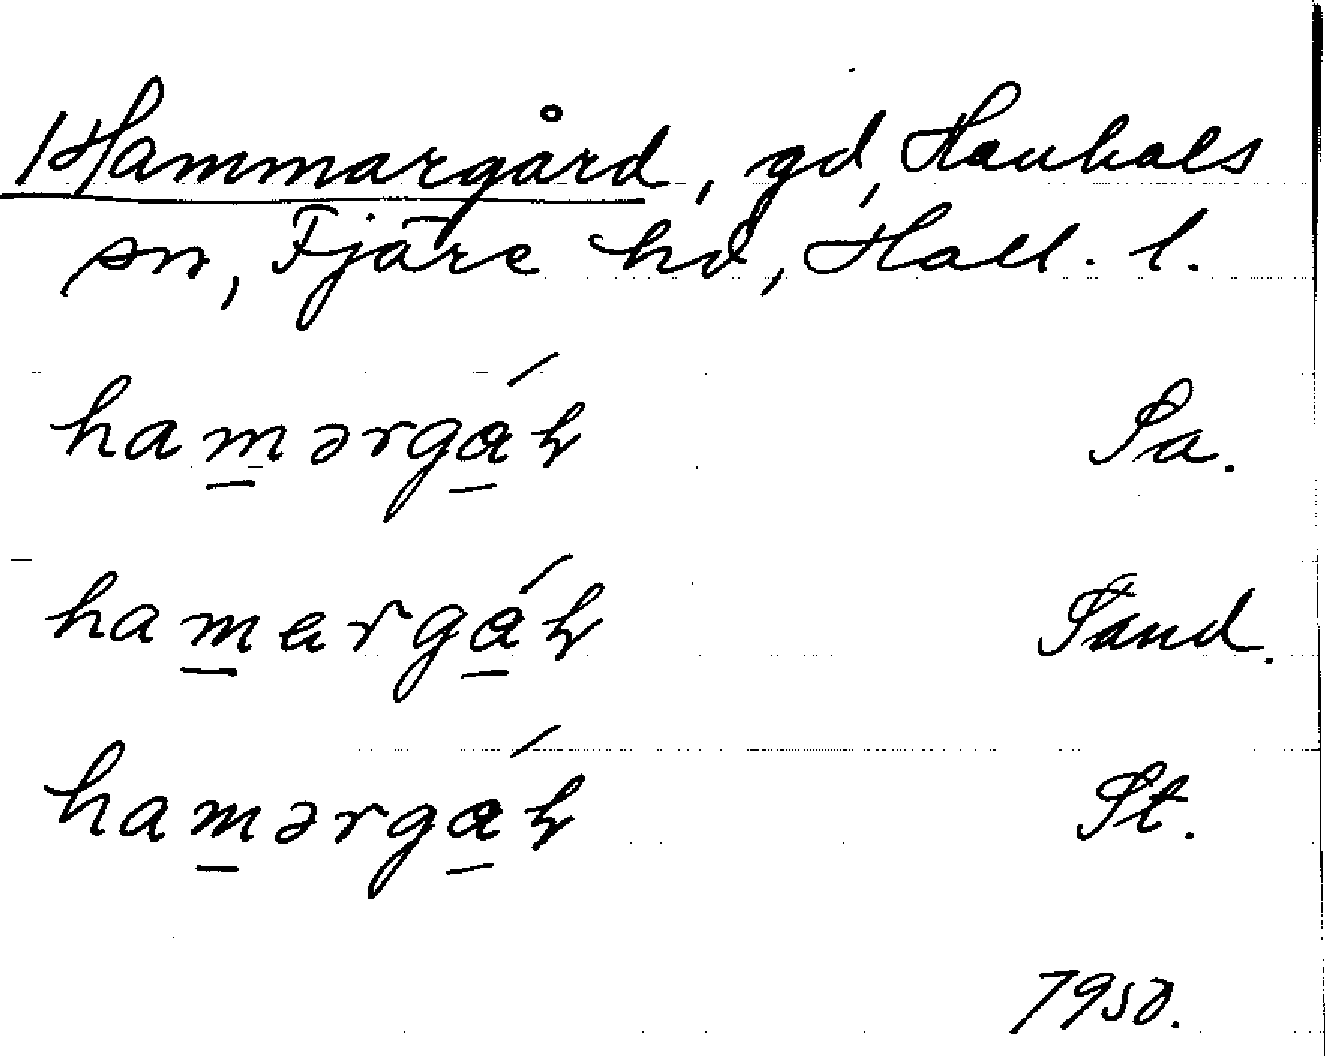 Hammargård, gd, Hanhals
sn, Fjäre hd, Hall. l.
hamərgáɽ Sa.
hamargáɽ Sand.
hamərgáɽ St.
1950.